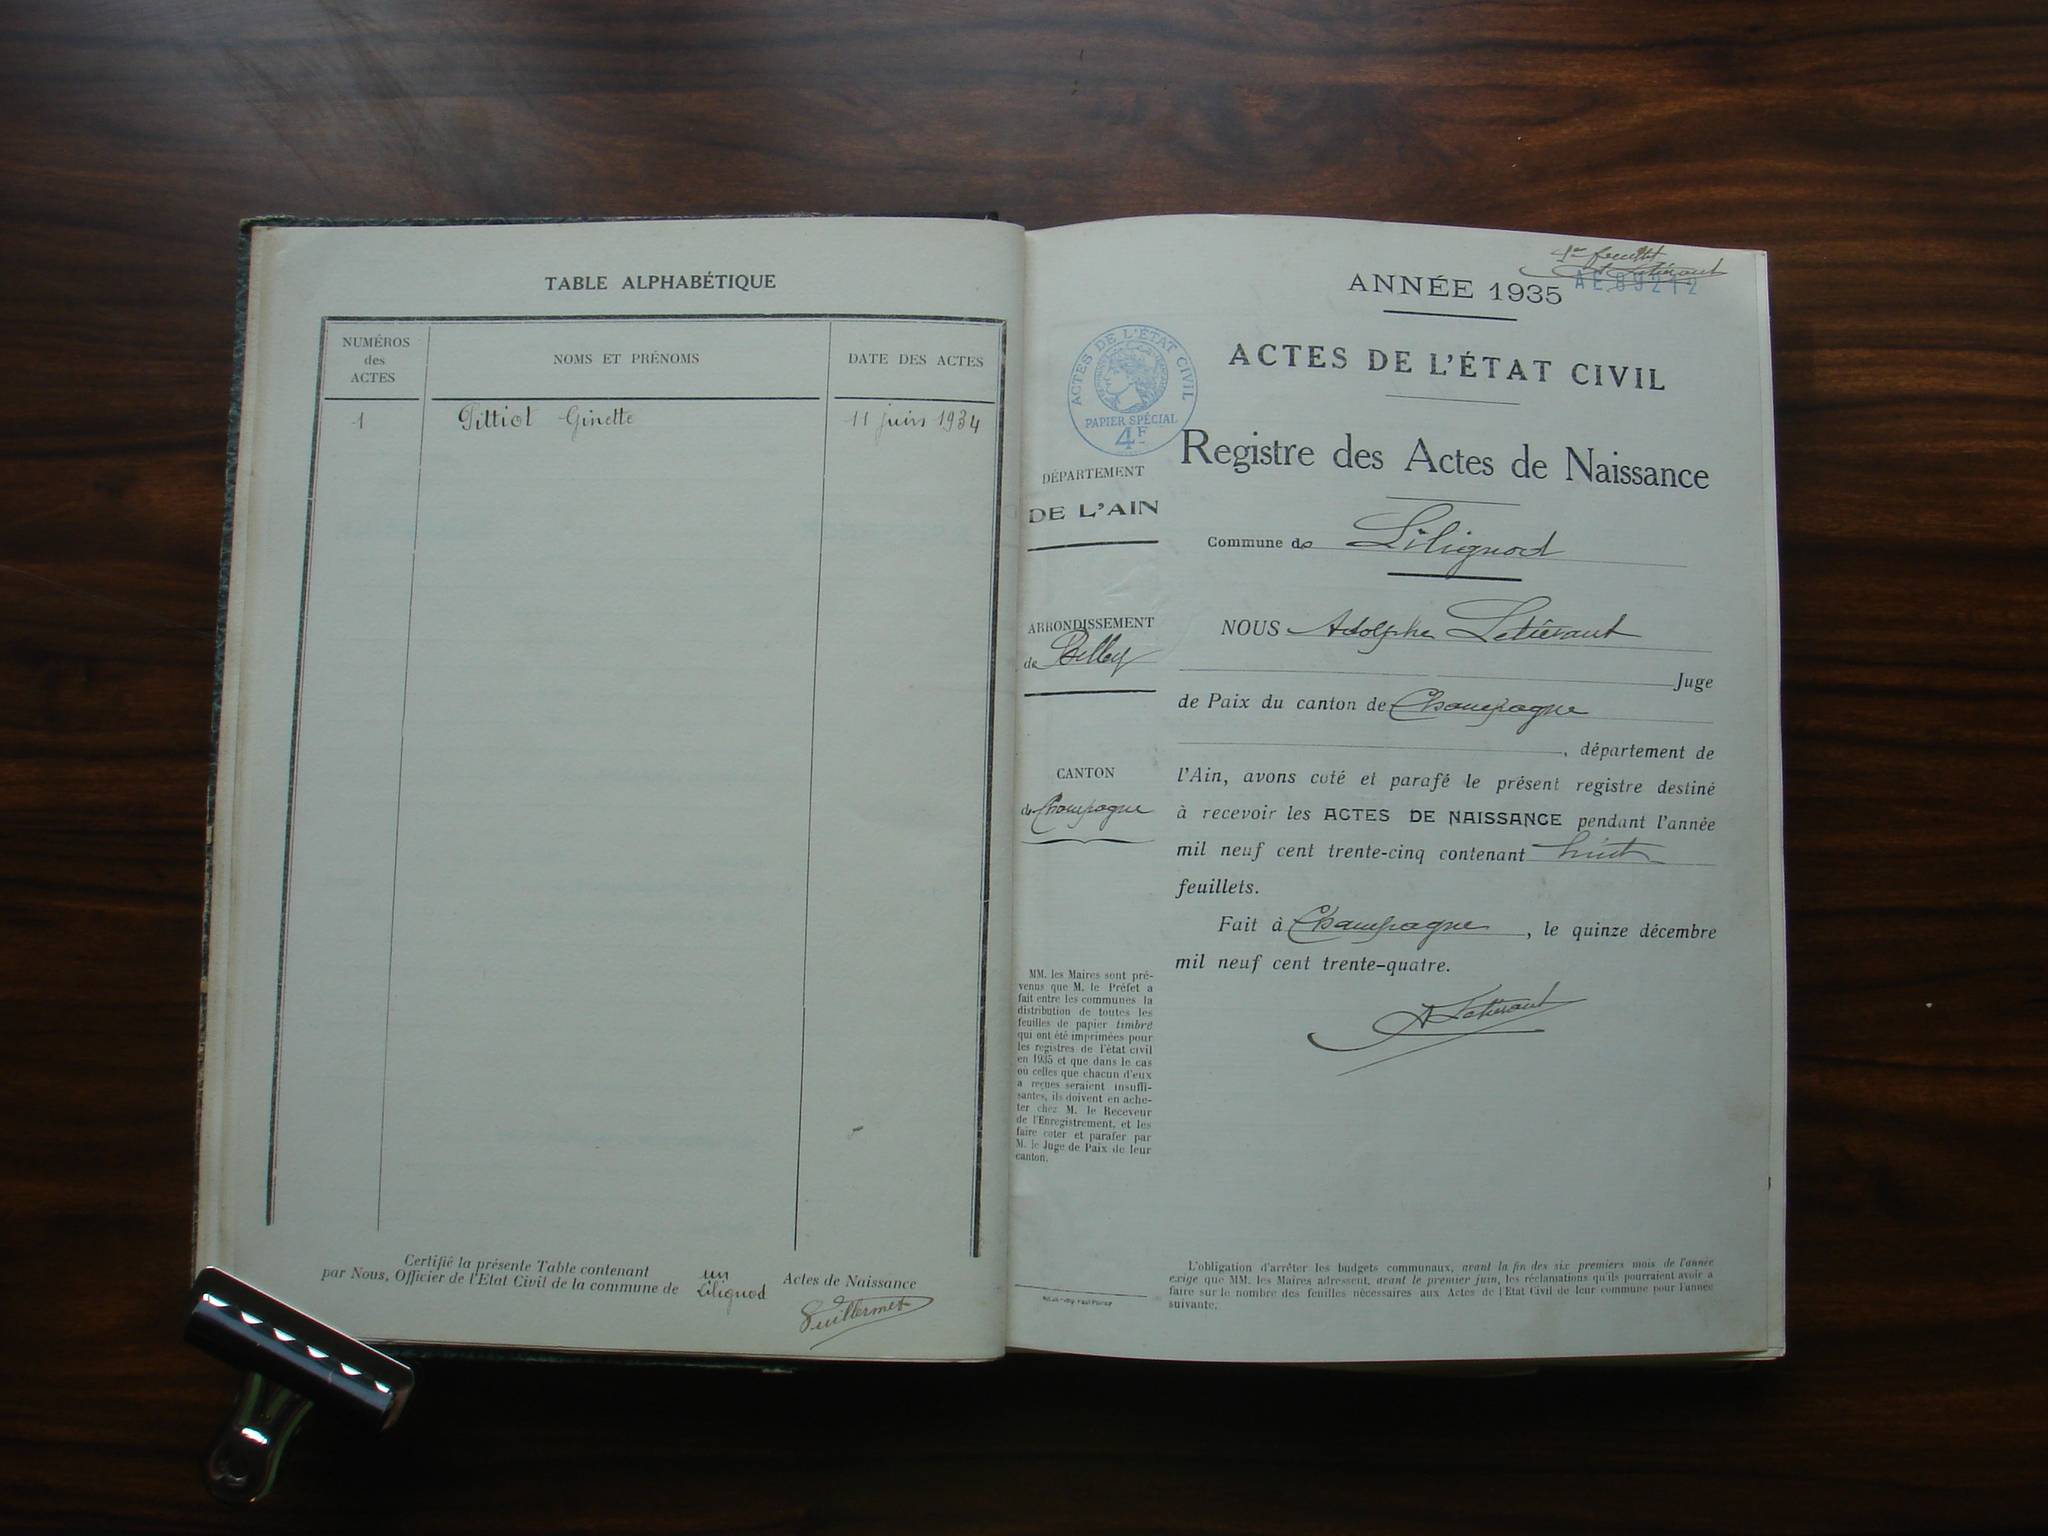 TABLE ALPHABÉTIQUE
NUMÉROS
des
ACTES
NOMS ET PRÉNOMS
DATE DES ACTES
1 Pittiot Ginette 11 juin 1934
Certifié la présente Table contenant un Actes de Naissance
par Nous, Officier de l'Etat Civil de la commune de Lilignod
Guillermet
1er feuillet
A Letiévant
AE 89212
ANNÉE 1935
ACTES DE L'ÉTAT CIVIL
ACTES DE L'ÉTAT CIVIL
PAPIER SPÉCIAL
4F
Registre des Actes de Naissance
DÉPARTEMENT
DE L'AIN
Commune de Lilignod
ARRONDISSEMENT
de Belley
CANTON
de Champagne
NOUS Adolphe Letiévant
Juge
de Paix du canton de Champagne
, département de
l'Ain, avons coté et parafé le présent registre destiné
à recevoir les ACTES DE NAISSANCE pendant l'année
mil neuf cent trente-cinq contenant huit
feuillets.
Fait à Champagne, le quinze décembre
mil neuf cent trente-quatre.
A Letiévant
MM. les Maires sont pré-
venus que M. le Préfet a
fait entre les communes la
distribution de toutes les
feuilles de papier timbré
qui ont été imprimées pour
les registres de l'état civil
en 1935 et que dans le cas
où celles que chacun d'eux
a reçues seraient insuffi-
santes, ils doivent en ache-
ter chez M. le Receveur
de l'Enregistrement, et les
faire coter et parafer par
M. le Juge de Paix de leur
canton.
L'obligation d'arrêter les budgets communaux, avant la fin des six premiers mois de l'année
exige que MM. les Maires adressent, avant le premier juin, les réclamations qu'ils pourraient avoir à
faire sur le nombre des feuilles nécessaires aux Actes de l'Etat Civil de leur commune pour l'année
suivante.